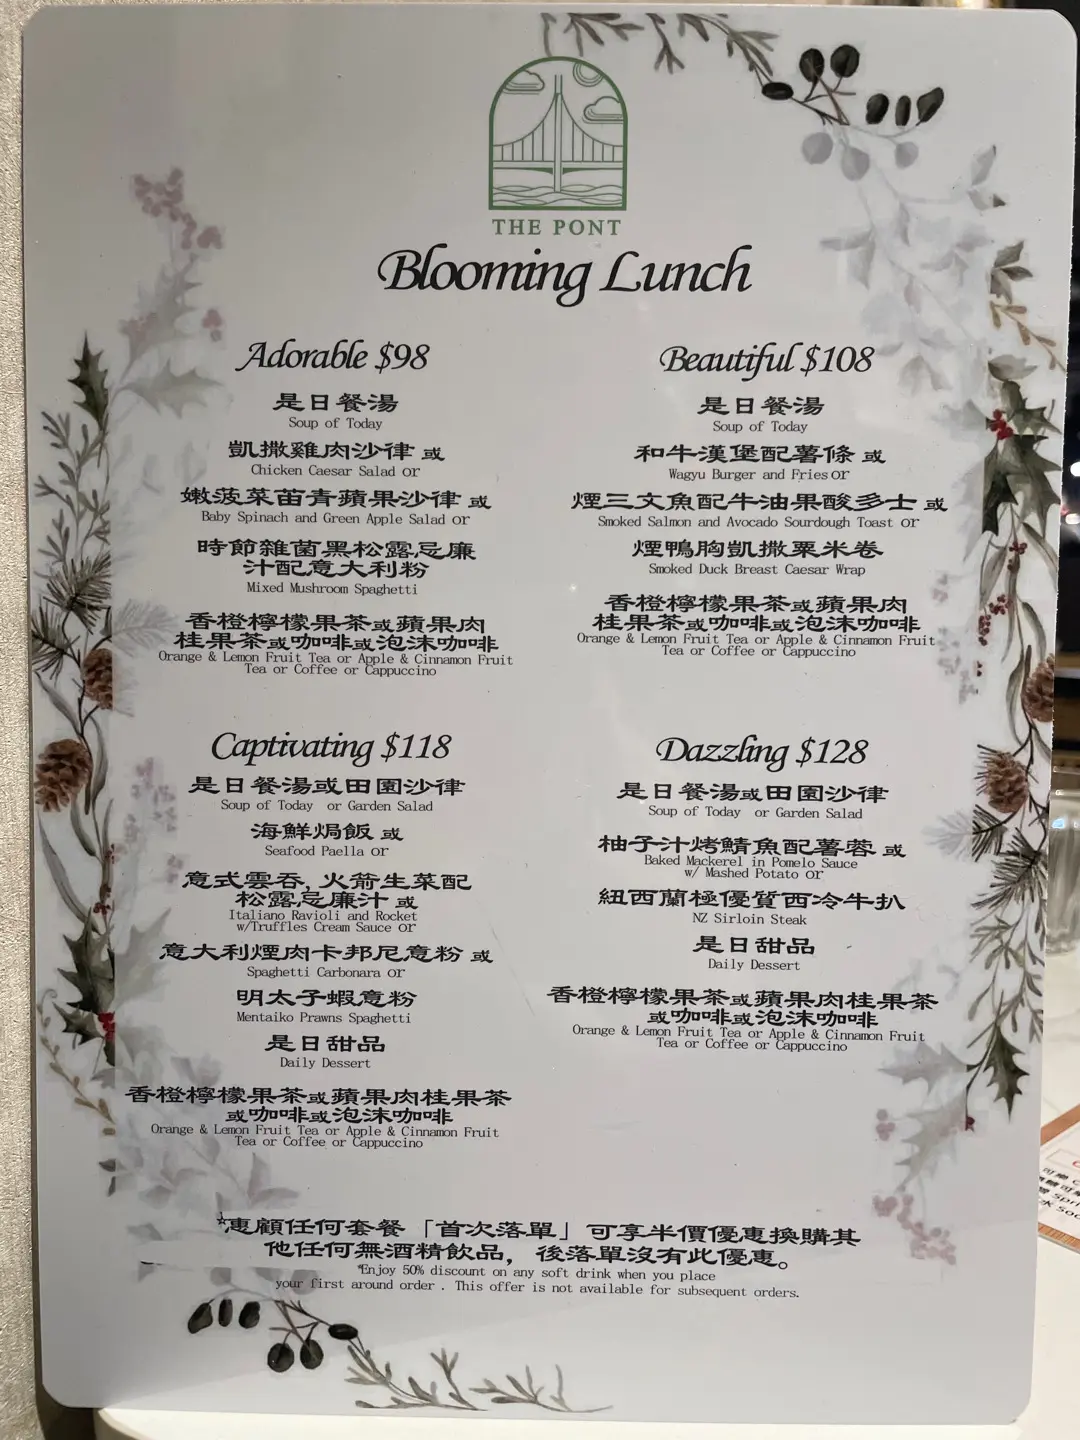 THE PONT
Blooming Lunch
Adorable $98
是日餐湯
Soup of Today
凱撒雞肉沙律 或
Chicken Caesar Salad or
嫩菠菜苗青蘋果沙律 或
Baby Spinach and Green Apple Salad or
時節雜菌黑松露忌廉
汁配意大利粉
Mixed Mushroom Spaghetti
香橙檸檬果茶或蘋果肉
桂果茶或咖啡或泡沫咖啡
Orange & Lemon Fruit Tea or Apple & Cinnamon Fruit
Tea or Coffee or Cappuccino
Beautiful $108
是日餐湯
Soup of Today
和牛漢堡配薯條 或
Wagyu Burger and Fries or
煙三文魚配牛油果酸多士 或
Smoked Salmon and Avocado Sourdough Toast or
煙鴨胸凱撒粟米卷
Smoked Duck Breast Caesar Wrap
香橙檸檬果茶或蘋果肉
桂果茶或咖啡或泡沫咖啡
Orange & Lemon Fruit Tea or Apple & Cinnamon Fruit
Tea or Coffee or Cappuccino
Captivating $118
是日餐湯或田園沙律
Soup of Today or Garden Salad
海鮮焗飯 或
Seafood Paella or
意式雲吞, 火箭生菜配
松露忌廉汁 或
Italiano Ravioli and Rocket
w/Truffles Cream Sauce or
意大利煙肉卡邦尼意粉 或
Spaghetti Carbonara or
明太子蝦意粉
Mentaiko Prawns Spaghetti
是日甜品
Daily Dessert
香橙檸檬果茶或蘋果肉桂果茶
或咖啡或泡沫咖啡
Orange & Lemon Fruit Tea or Apple & Cinnamon Fruit
Tea or Coffee or Cappuccino
Dazzling $128
是日餐湯或田園沙律
Soup of Today or Garden Salad
柚子汁烤鯖魚配薯蓉 或
Baked Mackerel in Pomelo Sauce
w/ Mashed Potato or
紐西蘭極優質西冷牛扒
NZ Sirloin Steak
是日甜品
Daily Dessert
香橙檸檬果茶或蘋果肉桂果茶
或咖啡或泡沫咖啡
Orange & Lemon Fruit Tea or Apple & Cinnamon Fruit
Tea or Coffee or Cappuccino
*惠顧任何套餐「首次落單」可享半價優惠換購其
他任何無酒精飲品，後落單沒有此優惠。
*Enjoy 50% discount on any soft drink when you place
your first around order . This offer is not available for subsequent orders.